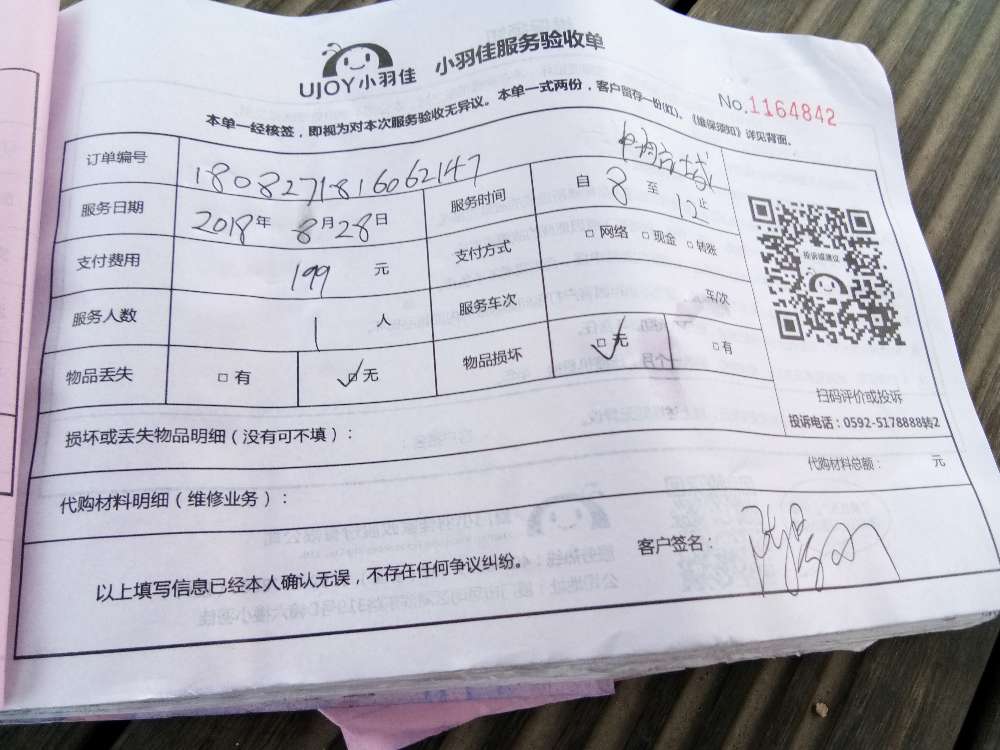 UJOY小羽佳 小羽佳服务验收单
No.1164842
本单一经核签，即视为对本次服务验收无异议。本单一式两份，客户留存一份(红)。《维保须知》详见背面。
订单编号 1808271816062147
服务日期 2018年 8月28日 服务时间 自 8 至 12 止
支付费用 199 元 支付方式 □ 网络 □ 现金 □ 转账
服务人数 1 人 服务车次 车/次
物品丢失 □ 有 ✓□ 无 物品损坏 ✓□ 无 □ 有
投诉或建议
扫码评价或投诉
投诉电话：0592-5178888转2
损坏或丢失物品明细（没有可不填）：
代购材料明细（维修业务）： 代购材料总额： 元
以上填写信息已经本人确认无误，不存在任何争议纠纷。 客户签名：